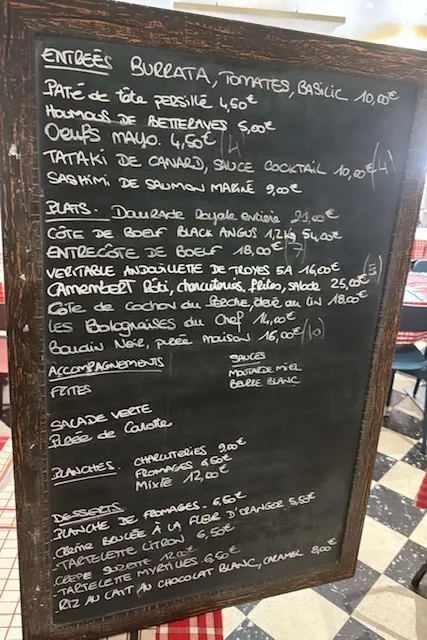 ENTREÉS BURRATA, TOMATES, BASILIC 10,00€
PATÉ de tête persillé 4,50€
HOUMOUS DE BETTERAVES 5,00€
OEUFS MAYO. 4,50€ (4)
TATAKI DE CANARD, SAUCE COCKTAIL 10,00€ (4)
SASHIMI DE SAUMON MARINÉ 9,00€
PLATS. Daurade Royale entière 21,00€
CÔTE DE BOEUF BLACK ANGUS 1,2kg 54,00€
ENTRECÔTE DE BOEUF 18,00€ (7)
VERITABLE ANDOUILLETTE DE TROYES 5A 16,00€ (5)
CAMEMBERT Rôti, charcuteries, frites, salade 25,00€
Côte de Cochon du Perche, élevé au lin 18,00€
Les Bolognaises du Chef 14,00€
Boudin Noir, purée maison 16,00€ (10)
ACCOMPAGNEMENTS
FRITES
SALADE VERTE
Purée de Carotte
SAUCES
MOUTARDE MIEL
BEURRE BLANC
PLANCHES. CHARCUTERIES 9,00€
FROMAGES 6,50€
MIXTE 12,00€
DESSERTS
PLANCHE DE FROMAGES. 6,50€
Crème BRULÉE À LA FLEUR D'ORANGER 5,50€
TARTELETTE CITRON 6,50€
CREPE SUZETTE 12,00€
TARTELETTE MYRTILLES 6,50€
RIZ AU LAIT AU CHOCOLAT BLANC, CARAMEL 8,00€